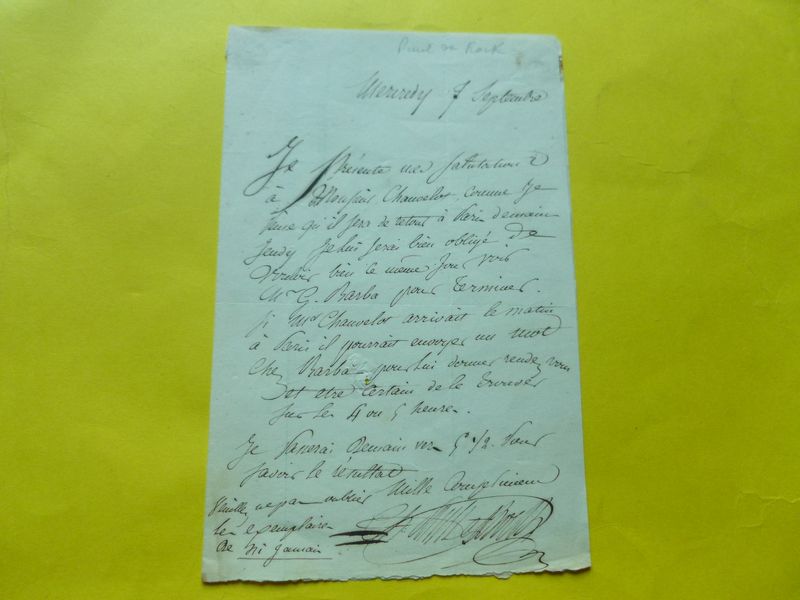 Paul de Kock
Mercredy 7 Septembre
Je présente mes salutations
à Monsieur Chauvelot, comme je
pense qu'il sera de retour à Paris demain
Jeudy je lui serai bien obligé de
vouloir bien le même jour voir
Mr G. Barba pour terminer.
Si Mr Chauvelot arrivait le matin
à Paris il pourrait envoyer un mot
chez Barba pour lui donner rendez vous
et être certain de le trouver
sur les 4 ou 5 heures.
Je passerai demain vers 5 1/2 pour
savoir le résultat
Mille compliments
Veuillez ne pas oublier
les exemplaires
de ni jamais